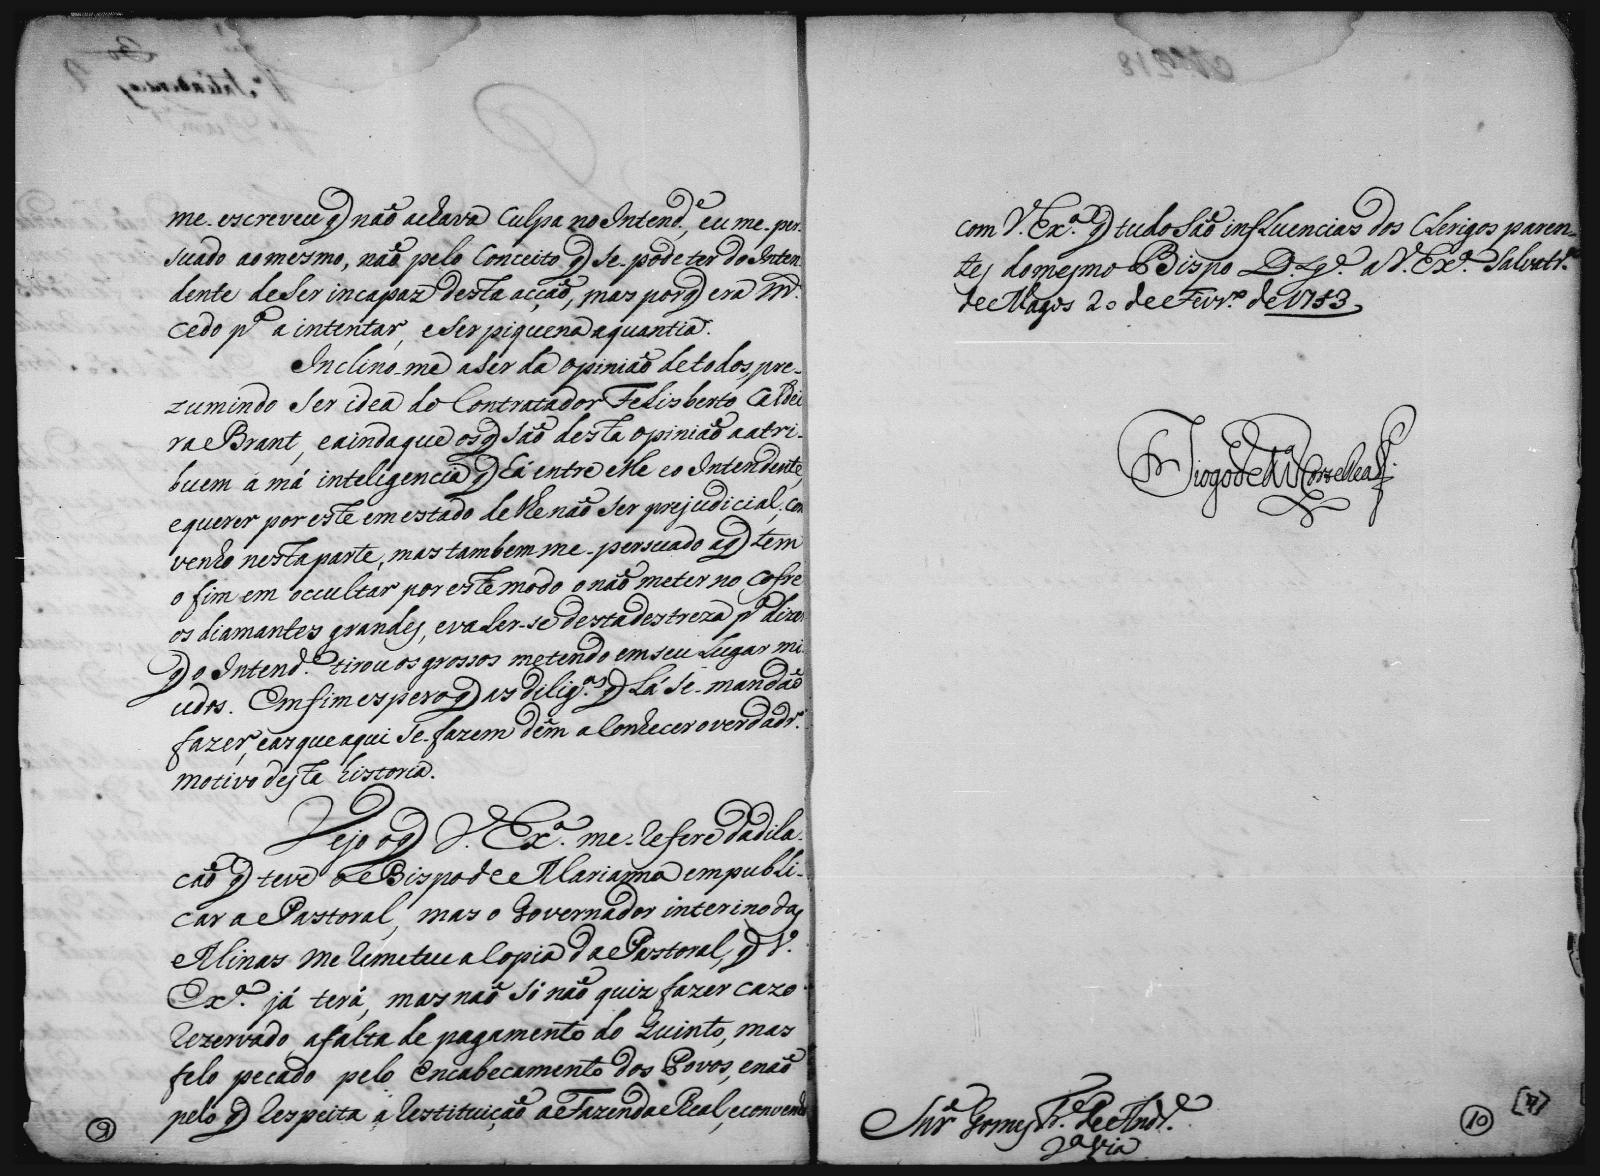 me escreveu q̃ não achava culpa no Intend.e, eu me per-
suado ao mesmo, não pelo conceito q̃ se pode ter do Inten
dente de ser incapaz desta acção, mas por q̃ era m.to
cedo p.a a intentar, e ser piquena a quantia.
Inclino-me a ser da opinião de todos, pre-
zumindo ser idea do Contratador Felisberto Caldei
ra Brant, e ainda que os q̃ são desta opinião a atri-
buem á má inteligencia q̃ há entre elle e o Intendente,
e querer por este em estado de lhe não ser prejudicial, con
venho nesta parte, mas tambem me persuado a q̃ tem
o fim em occultar por este modo o não meter no cofre
os diamantes grandes, e valer-se desta destreza p.a dizer
q̃ o Intend.e tirou os grossos metendo em seu lugar mi
udos. Emfim espero q̃ as dilig.as q̃ lá se mandão
fazer, e as que aqui se fazem dêm a conhecer o verdadr.o
motivo desta historia.
Vejo o q̃ V. Ex.a me refere da dila-
cão q̃ teve o Bispo de Marianna em publi-
car a Pastoral, mas o Governador interino das
Minas me remeteu a copia da Pastoral, q̃ V.
Ex.a já terá, mas não só não quiz fazer cazo
rezervado a falta de pagamento do Quinto, mas
felo pecado pelo encabecamento dos Povos, e não
pelo q̃ respeita a restituição a Fazenda Real, e convenho
9
com V. Ex.a q̃ tudo são influencias dos Clerigos paren-
tes do mesmo Bispo D.s g.e a V. Ex.a Salvatr.a
de Magos 20 de Fevr.o de 1753
Diogo de M.ça Corte Real
Snr̃ Gomes Fr.e de Andr.e
2.a via
10